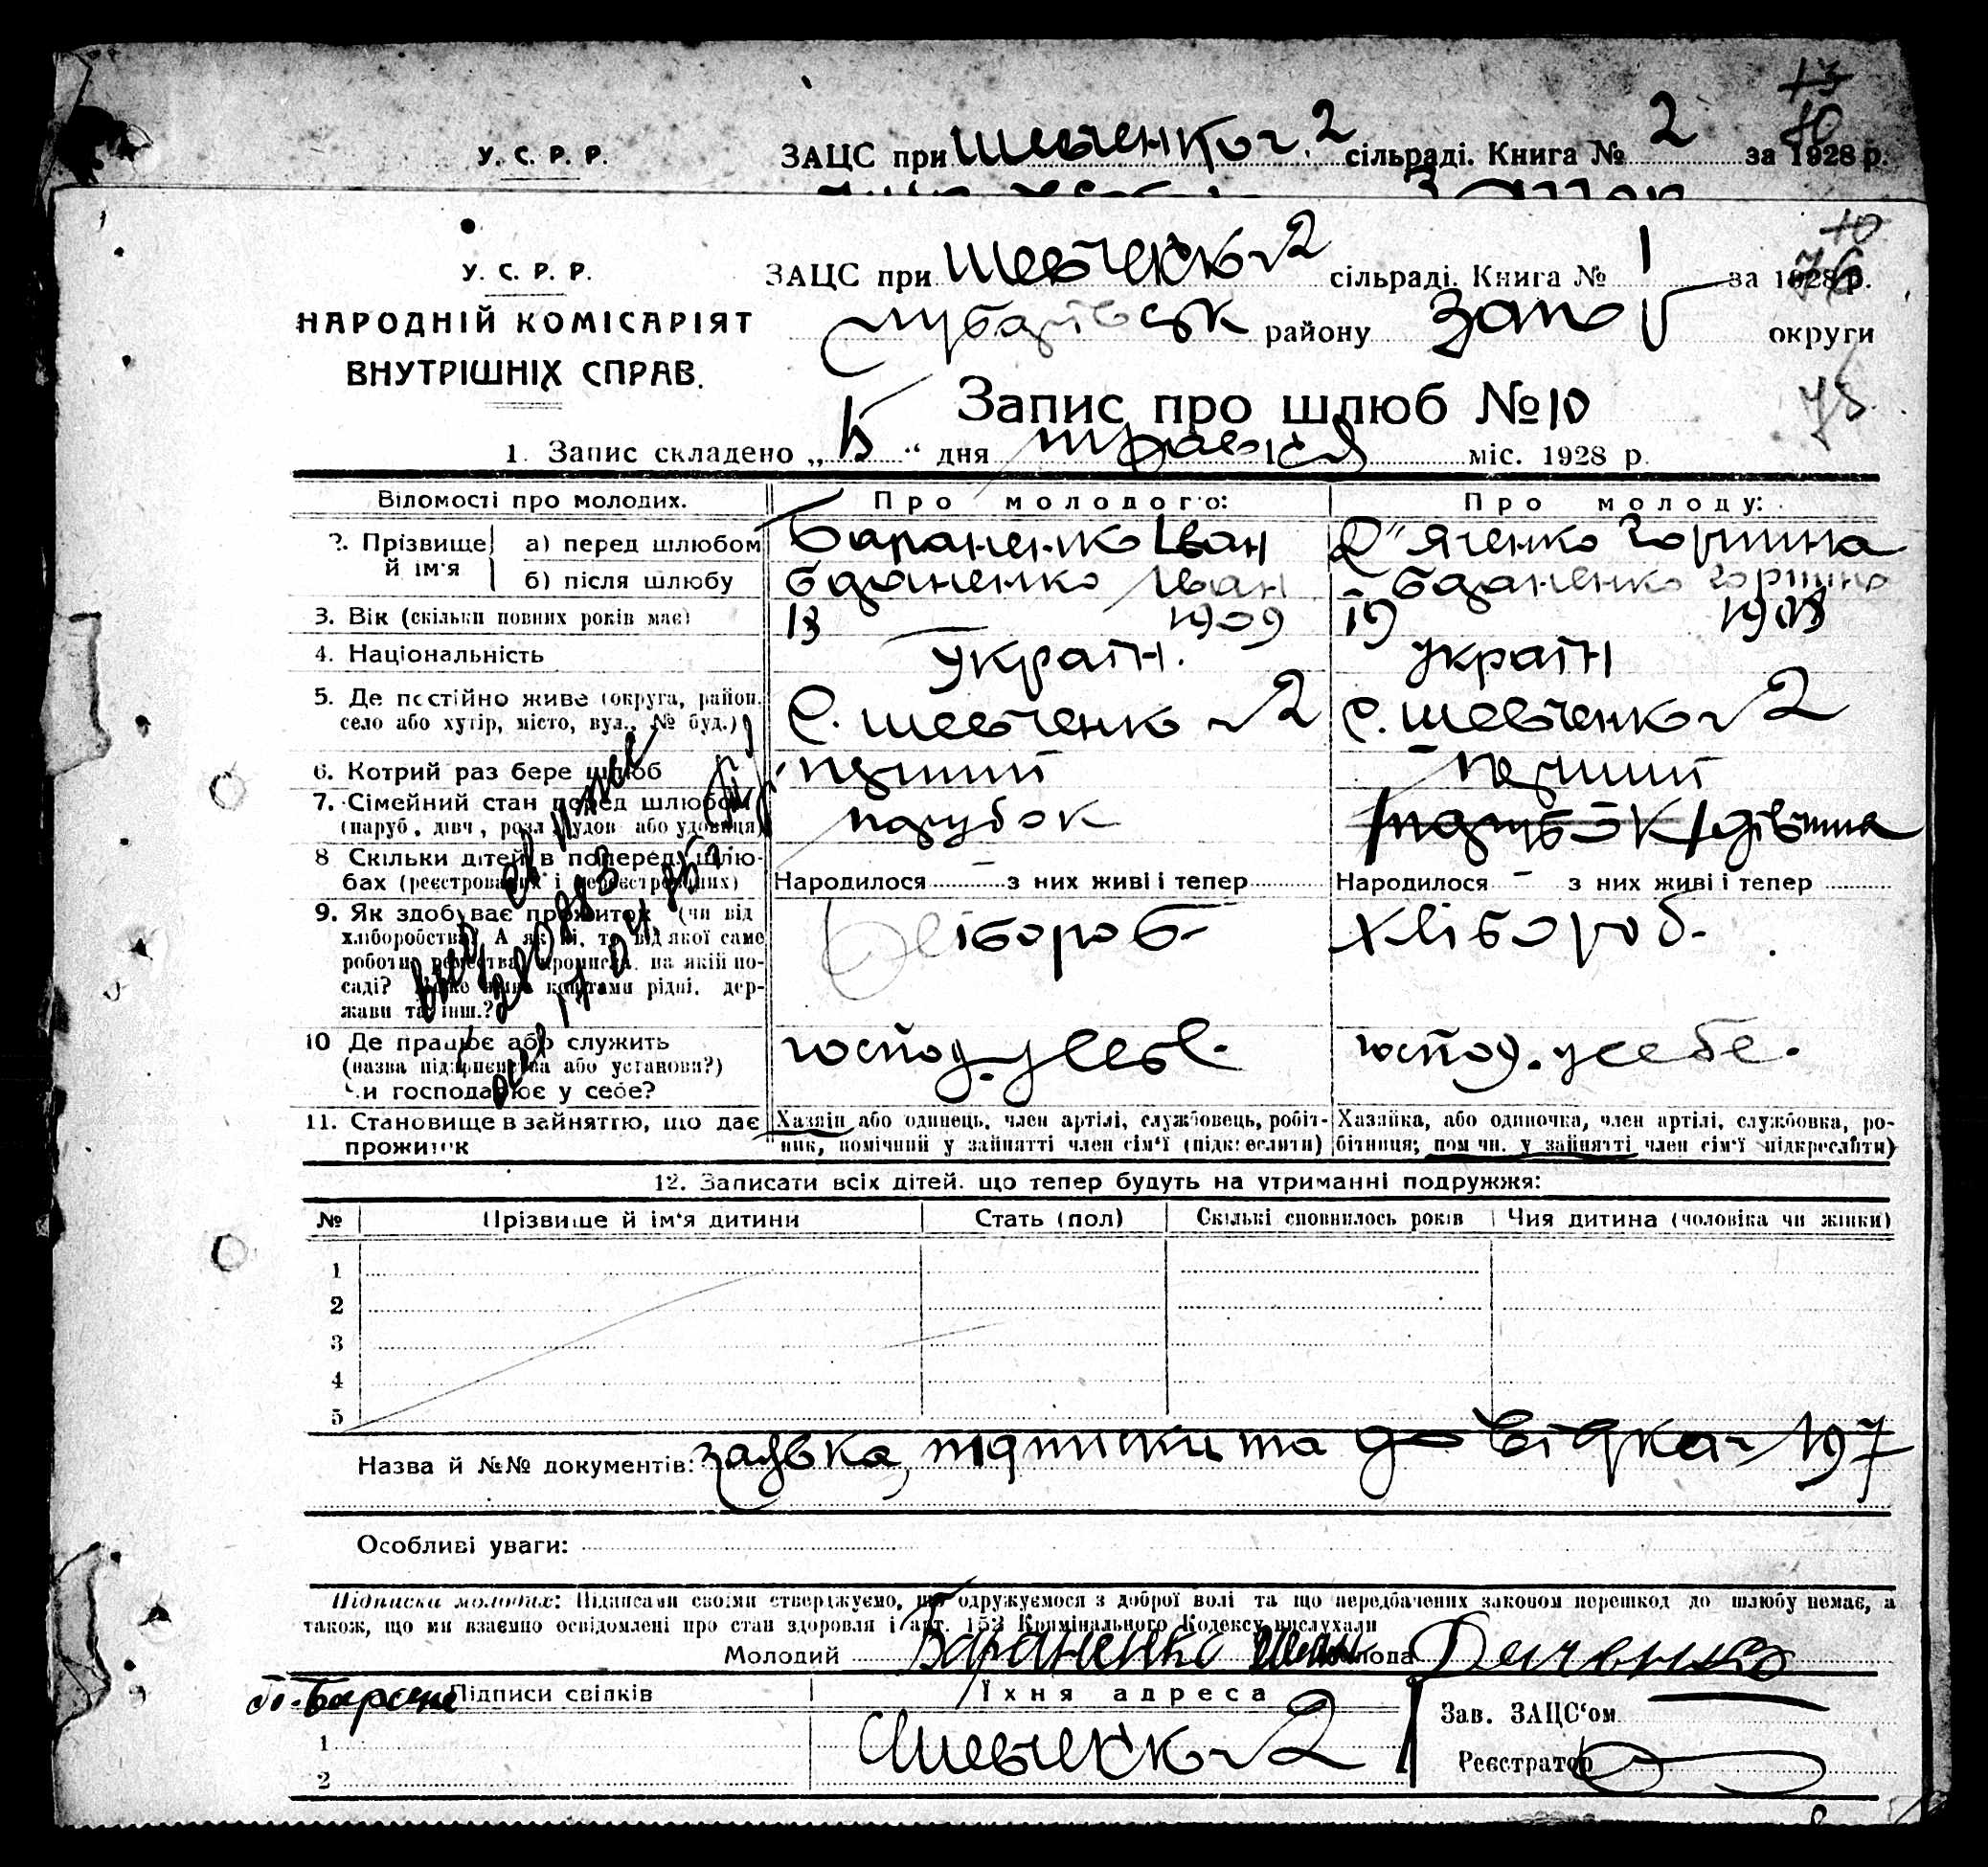 У. С. Р. Р. ЗАЦС при Шевченко 2 сільраді. Книга № 2 за 1928 р.
У. С. Р. Р.
НАРОДНІЙ КОМІСАРІЯТ
ВНУТРІШНІХ СПРАВ.
ЗАЦС при Шевченко 2 сільраді. Книга № 1 за 1928 р.
району Запо округи
Запис про шлюб № 10
1. Запис складено „ “ дня травня міс. 1928 р.
Відомості про молодих. Про молодого: Про молоду:
2. Прізвище й ім'я
а) перед шлюбом Бараненко Іван Д"яченко Горпина
б) після шлюбу Бараненко Іван Бараненко Горпина
3. Вік (скільки повних років має) 18 1909 19
4. Національність Україн. україн
5. Де постійно живе (округа, район, село або хутір, місто, вул., № буд.) С. Шевченко 2 с. Шевченко 2
6. Котрий раз бере шлюб перший перший
7. Сімейний стан перед шлюбом (паруб., дівч., розл., удов. або удовиця) парубок парубок дівчина
8. Скільки дітей в попередн. шлюбах (реєстрованих і нереєстрованих) Народилося з них живі і тепер Народилося – з них живі і тепер
9. Як здобуває прожиток (чи від хліборобства? А як ні, то від якої саме роботи, ремества, промисла, на якій посаді? коштами рідні, держави та інш.?) хлібороб- хлібороб-
10. Де працює або служить (назва підприємства або установи?) Чи господарює у себе? господ. у себе. господ. у себе.
11. Становище в зайняттю, що дає прожиток
Хазяїн або одинець, член артілі, службовець, робітник, помічний у зайнятті член сім'ї (підкреслити)
Хазяйка, або одиночка, член артілі, службовка, робітниця; помічн. у зайнятті член сім'ї (підкреслити)
12. Записати всіх дітей, що тепер будуть на утриманні подружжя:
№ Прізвище й ім'я дитини Стать (пол) Скількі сповнилось років Чия дитина (чоловіка чи жінки)
1
2
3
4
5
Назва й №№ документів: заявка, підписки та довідка 197
Особливі уваги:
Підписка молодих: Підписами своїми стверджуємо, що одружуємося з доброї волі та що передбачених законом перешкод до шлюбу немає, а
також, що ми взаємно освідомлені про стан здоровля і арт. 153 Кримінального Кодексу вислухали
Молодий Бараненко Іван Молода Дяченко
Підписи свідків Їхня адреса Зав. ЗАЦС'ом
1 Шевченко 2
2 Реєстратор